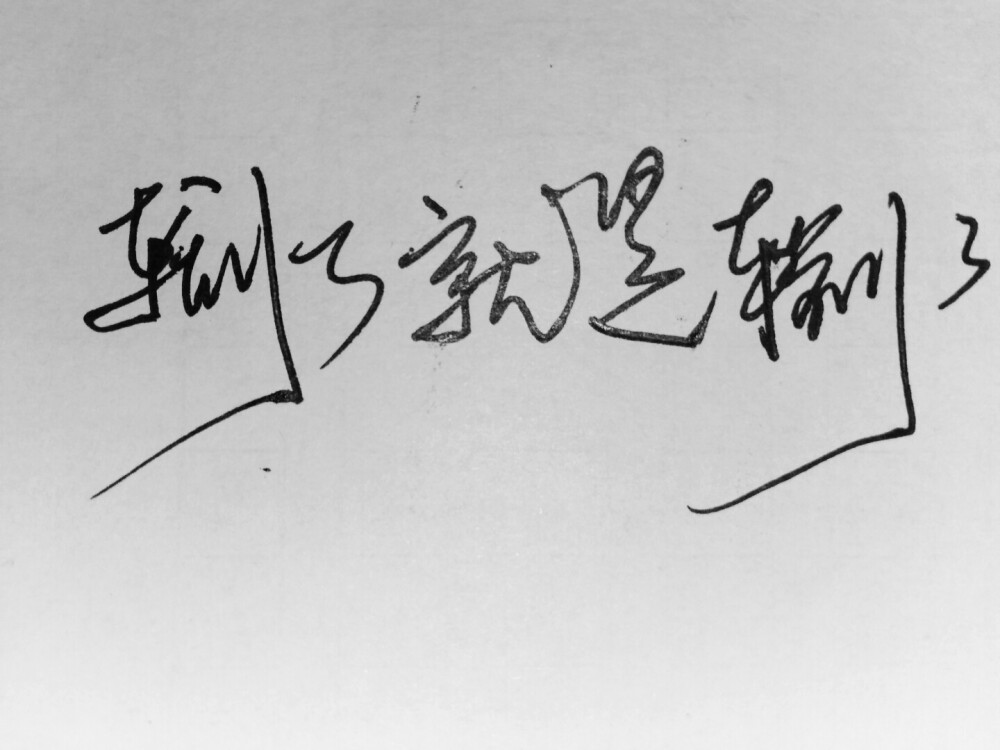 输了就是输了